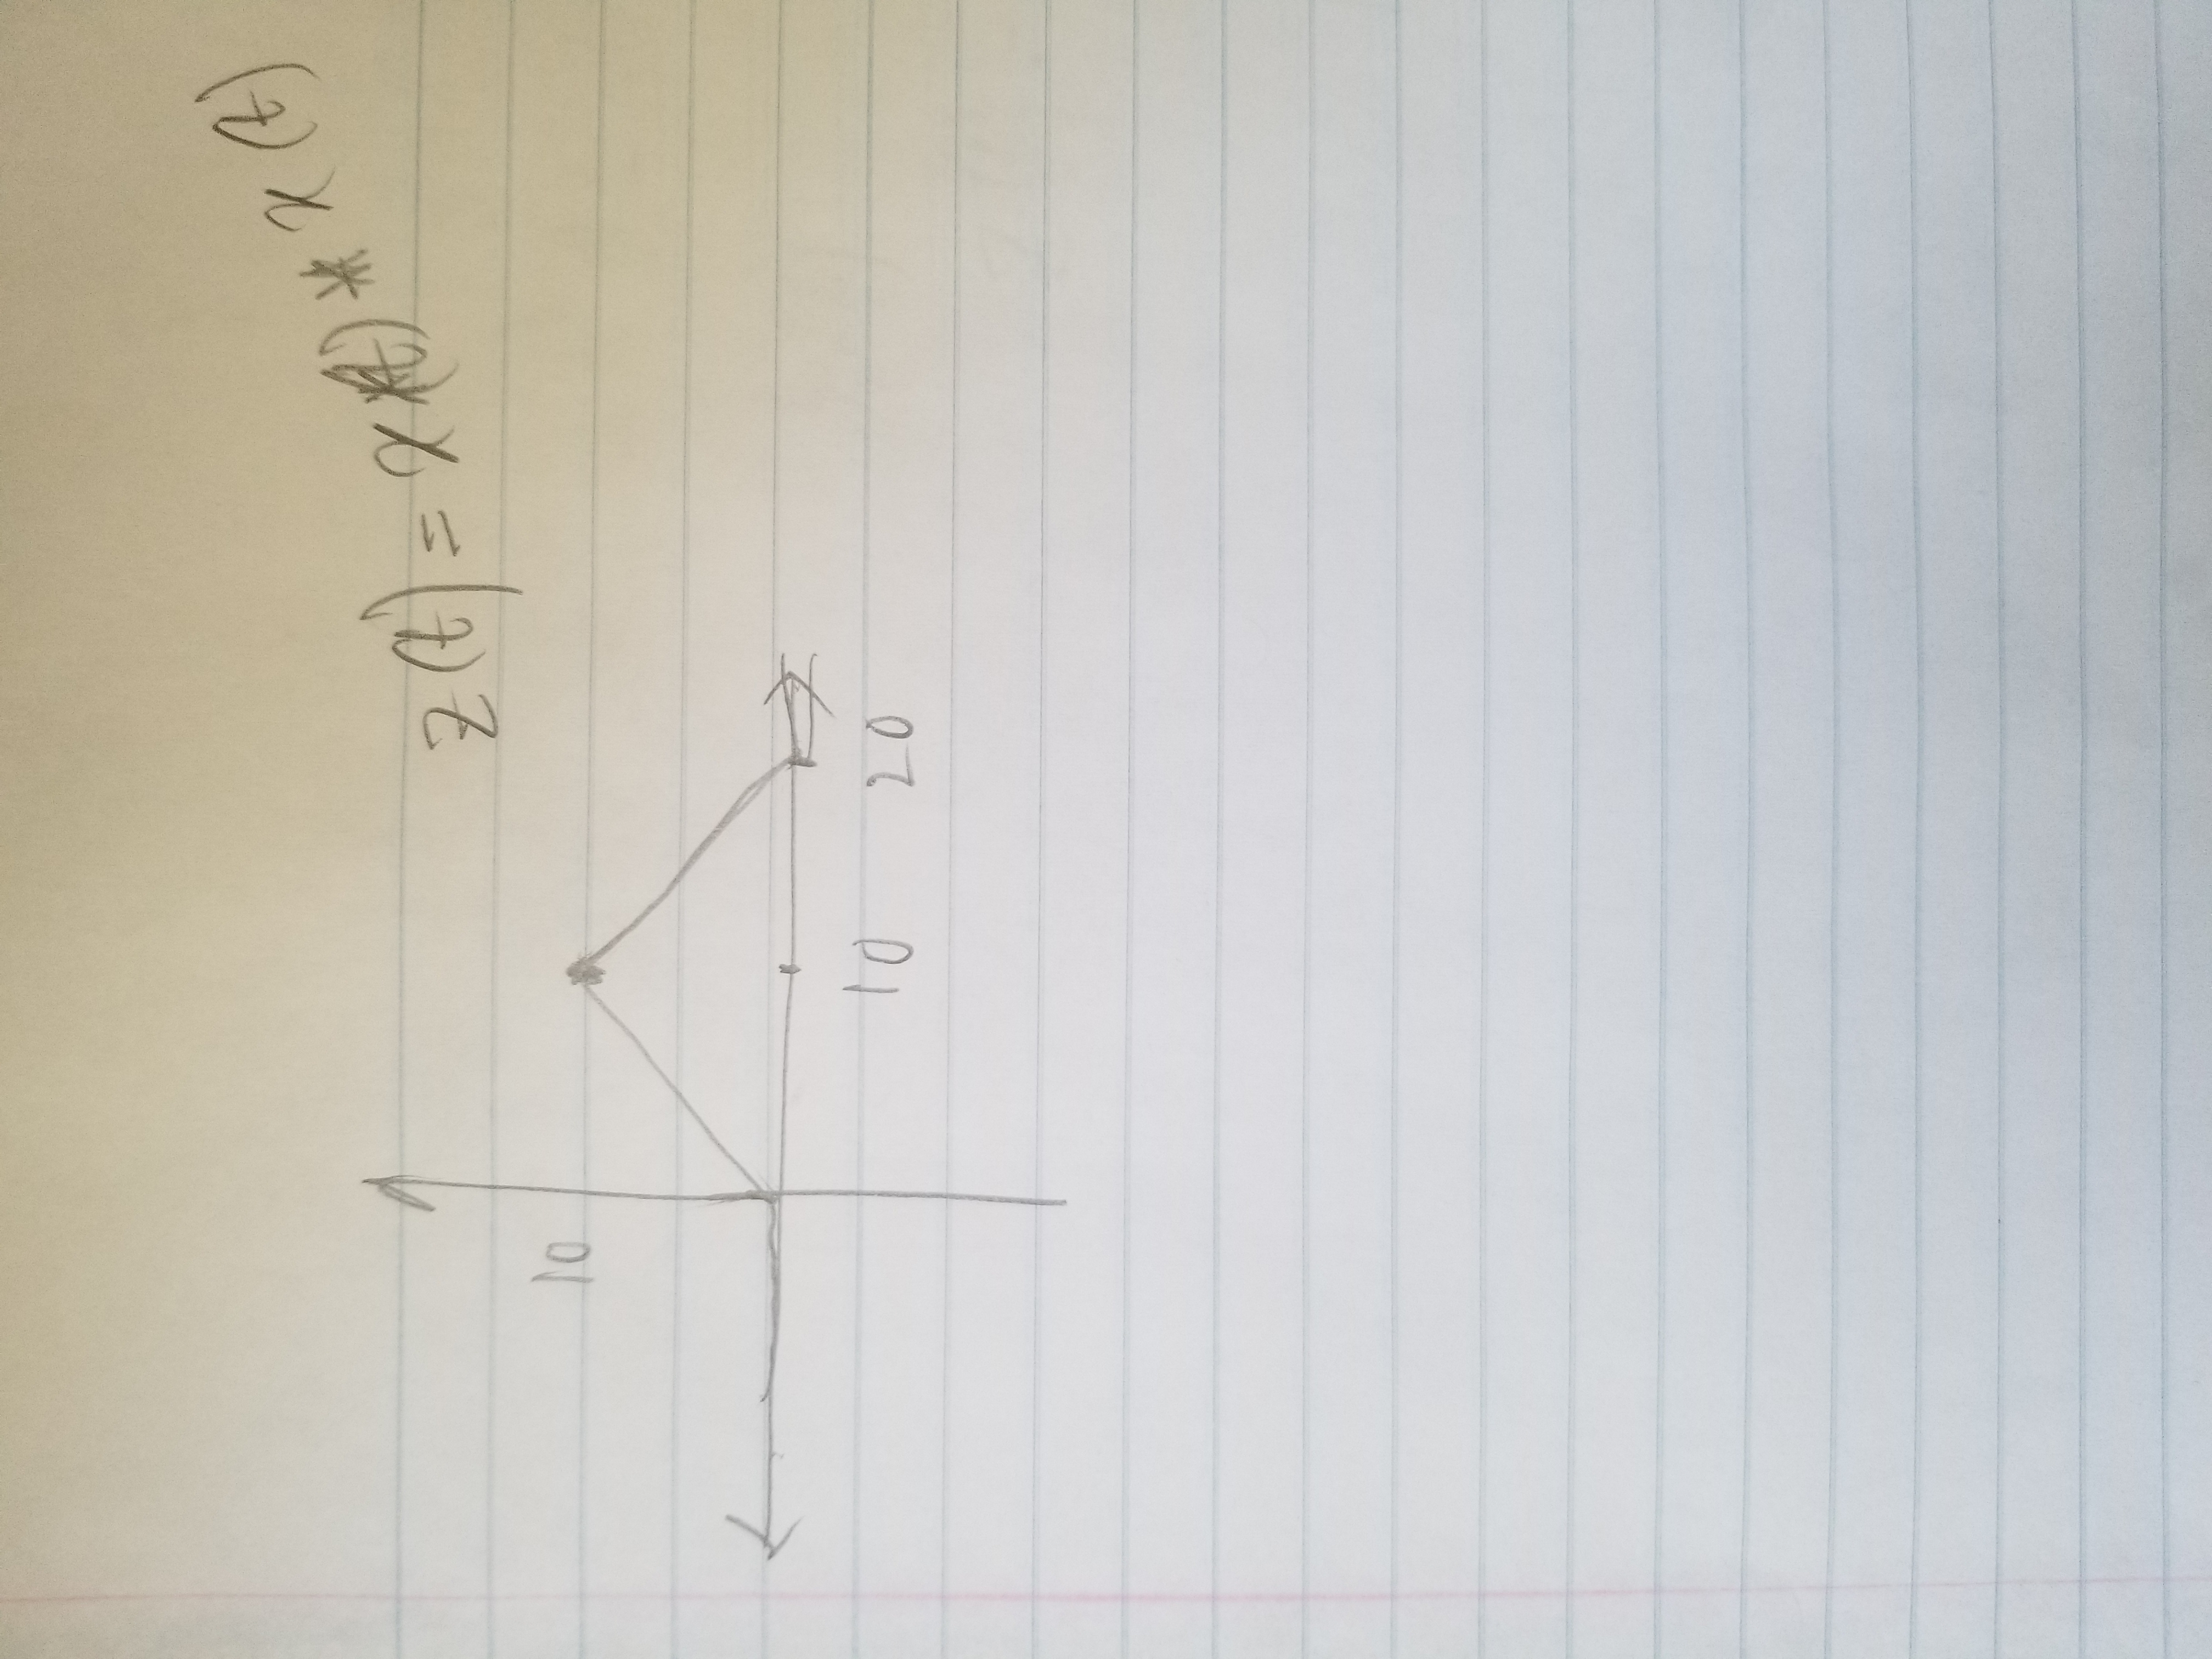 z(t) = x(t) * x(t)
10
10 20